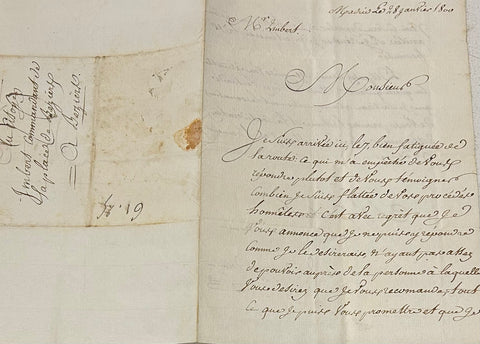 Au Citoyen
Imbert Commandant de
la place de Beziers
A Beziers
Madrid Le 28 janvier 1800
Mr. Imbert.
Monsieur
Je suis arrivée ici, le 7, bien fatiguée de
la route ce qui m'a empêchée de vous
répondre plutot et de vous témoigner
combien je suis flattée de vos procédés
honnêtes. C'ont avec regret que je
vous annonce que je ne puis y répondre
comme je le desirerais n'ayant pas assez
de pouvoir auprès de la personne à laquelle
vous desirez que je vous recomande, tout
ce que je puis vous promettre et que je